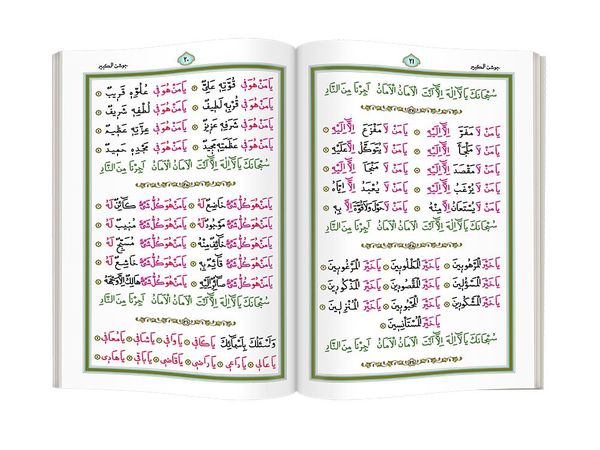 جوشن الكبير
٢٠
يَا مَنْ هُوَ فِي قُوَّتِهِ عَلِيٌّ يَا مَنْ هُوَ فِي عُلُوِّهِ قَرِيبٌ
يَا مَنْ هُوَ فِي قُرْبِهِ لَطِيفٌ يَا مَنْ هُوَ فِي لُطْفِهِ شَرِيفٌ
يَا مَنْ هُوَ فِي شَرَفِهِ عَزِيزٌ يَا مَنْ هُوَ فِي عِزَّتِهِ عَظِيمٌ
يَا مَنْ هُوَ فِي عَظَمَتِهِ مَجِيدٌ يَا مَنْ هُوَ فِي مَجْدِهِ حَمِيدٌ
سُبْحَانَكَ يَا لَا إِلٰهَ إِلَّا أَنْتَ الْأَمَانُ الْأَمَانُ أَجِرْنَا مِنَ النَّارِ
يَا مَنْ هُوَ كُلُّ شَيْءٍ خَاضِعٌ لَهُ يَا مَنْ هُوَ كُلُّ شَيْءٍ كَائِنٌ لَهُ
يَا مَنْ هُوَ كُلُّ شَيْءٍ مَوْجُودٌ لَهُ يَا مَنْ هُوَ كُلُّ شَيْءٍ مُنِيبٌ لَهُ
يَا مَنْ هُوَ كُلُّ شَيْءٍ خَائِفٌ مِنْهُ يَا مَنْ هُوَ كُلُّ شَيْءٍ مُسَبِّحٌ لَهُ
يَا مَنْ هُوَ كُلُّ شَيْءٍ قَائِمٌ بِهِ يَا مَنْ هُوَ كُلُّ شَيْءٍ خَاشِعٌ لَهُ
يَا مَنْ هُوَ كُلُّ شَيْءٍ صَائِرٌ إِلَيْهِ يَا مَنْ هُوَ كُلُّ شَيْءٍ هَالِكٌ إِلَّا وَجْهَهُ
سُبْحَانَكَ يَا لَا إِلٰهَ إِلَّا أَنْتَ الْأَمَانُ الْأَمَانُ أَجِرْنَا مِنَ النَّارِ
وَأَسْئَلُكَ بِأَسْمَائِكَ يَا كَافِي يَا وَافِي يَا شَافِي يَا مُعَافِي
يَا عَالِي يَا دَاعِي يَا رَاضِي يَا قَاضِي يَا بَاقِي يَا هَادِي
٢١
جوشن الكبير
سُبْحَانَكَ يَا لَا إِلٰهَ إِلَّا أَنْتَ الْأَمَانُ الْأَمَانُ أَجِرْنَا مِنَ النَّارِ
يَا مَنْ لَا مَفَرَّ إِلَّا إِلَيْهِ يَا مَنْ لَا مَفْزَعَ إِلَّا إِلَيْهِ
يَا مَنْ لَا مَلْجَأَ إِلَّا إِلَيْهِ يَا مَنْ لَا يُتَوَكَّلُ إِلَّا عَلَيْهِ
يَا مَنْ لَا مَقْصَدَ إِلَّا إِلَيْهِ يَا مَنْ لَا مَنْجَأَ إِلَّا إِلَيْهِ
يَا مَنْ لَا يُرْغَبُ إِلَّا إِلَيْهِ يَا مَنْ لَا يُعْبَدُ إِلَّا إِيَّاهُ
يَا مَنْ لَا يُسْتَعَانُ إِلَّا مِنْهُ يَا مَنْ لَا حَوْلَ وَلَا قُوَّةَ إِلَّا بِهِ
سُبْحَانَكَ يَا لَا إِلٰهَ إِلَّا أَنْتَ الْأَمَانُ الْأَمَانُ أَجِرْنَا مِنَ النَّارِ
يَا خَيْرَ الْمَرْهُوبِينَ يَا خَيْرَ الْمَطْلُوبِينَ يَا خَيْرَ الْمَرْغُوبِينَ
يَا خَيْرَ الْمَسْؤُلِينَ يَا خَيْرَ الْمَقْصُودِينَ يَا خَيْرَ الْمَذْكُورِينَ
يَا خَيْرَ الْمَشْكُورِينَ يَا خَيْرَ الْمَحْبُوبِينَ يَا خَيْرَ الْمُنْزِلِينَ
يَا خَيْرَ الْمُسْتَأْنِسِينَ
سُبْحَانَكَ يَا لَا إِلٰهَ إِلَّا أَنْتَ الْأَمَانُ الْأَمَانُ أَجِرْنَا مِنَ النَّارِ